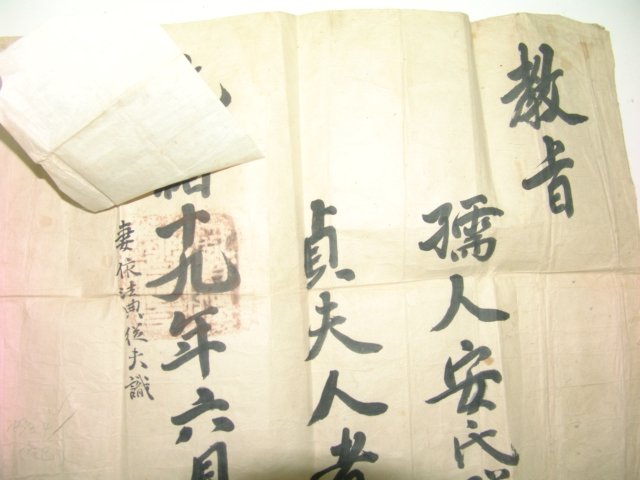 教旨
孺人安氏
貞夫人者
緖十九年六月
妻依法典從夫職